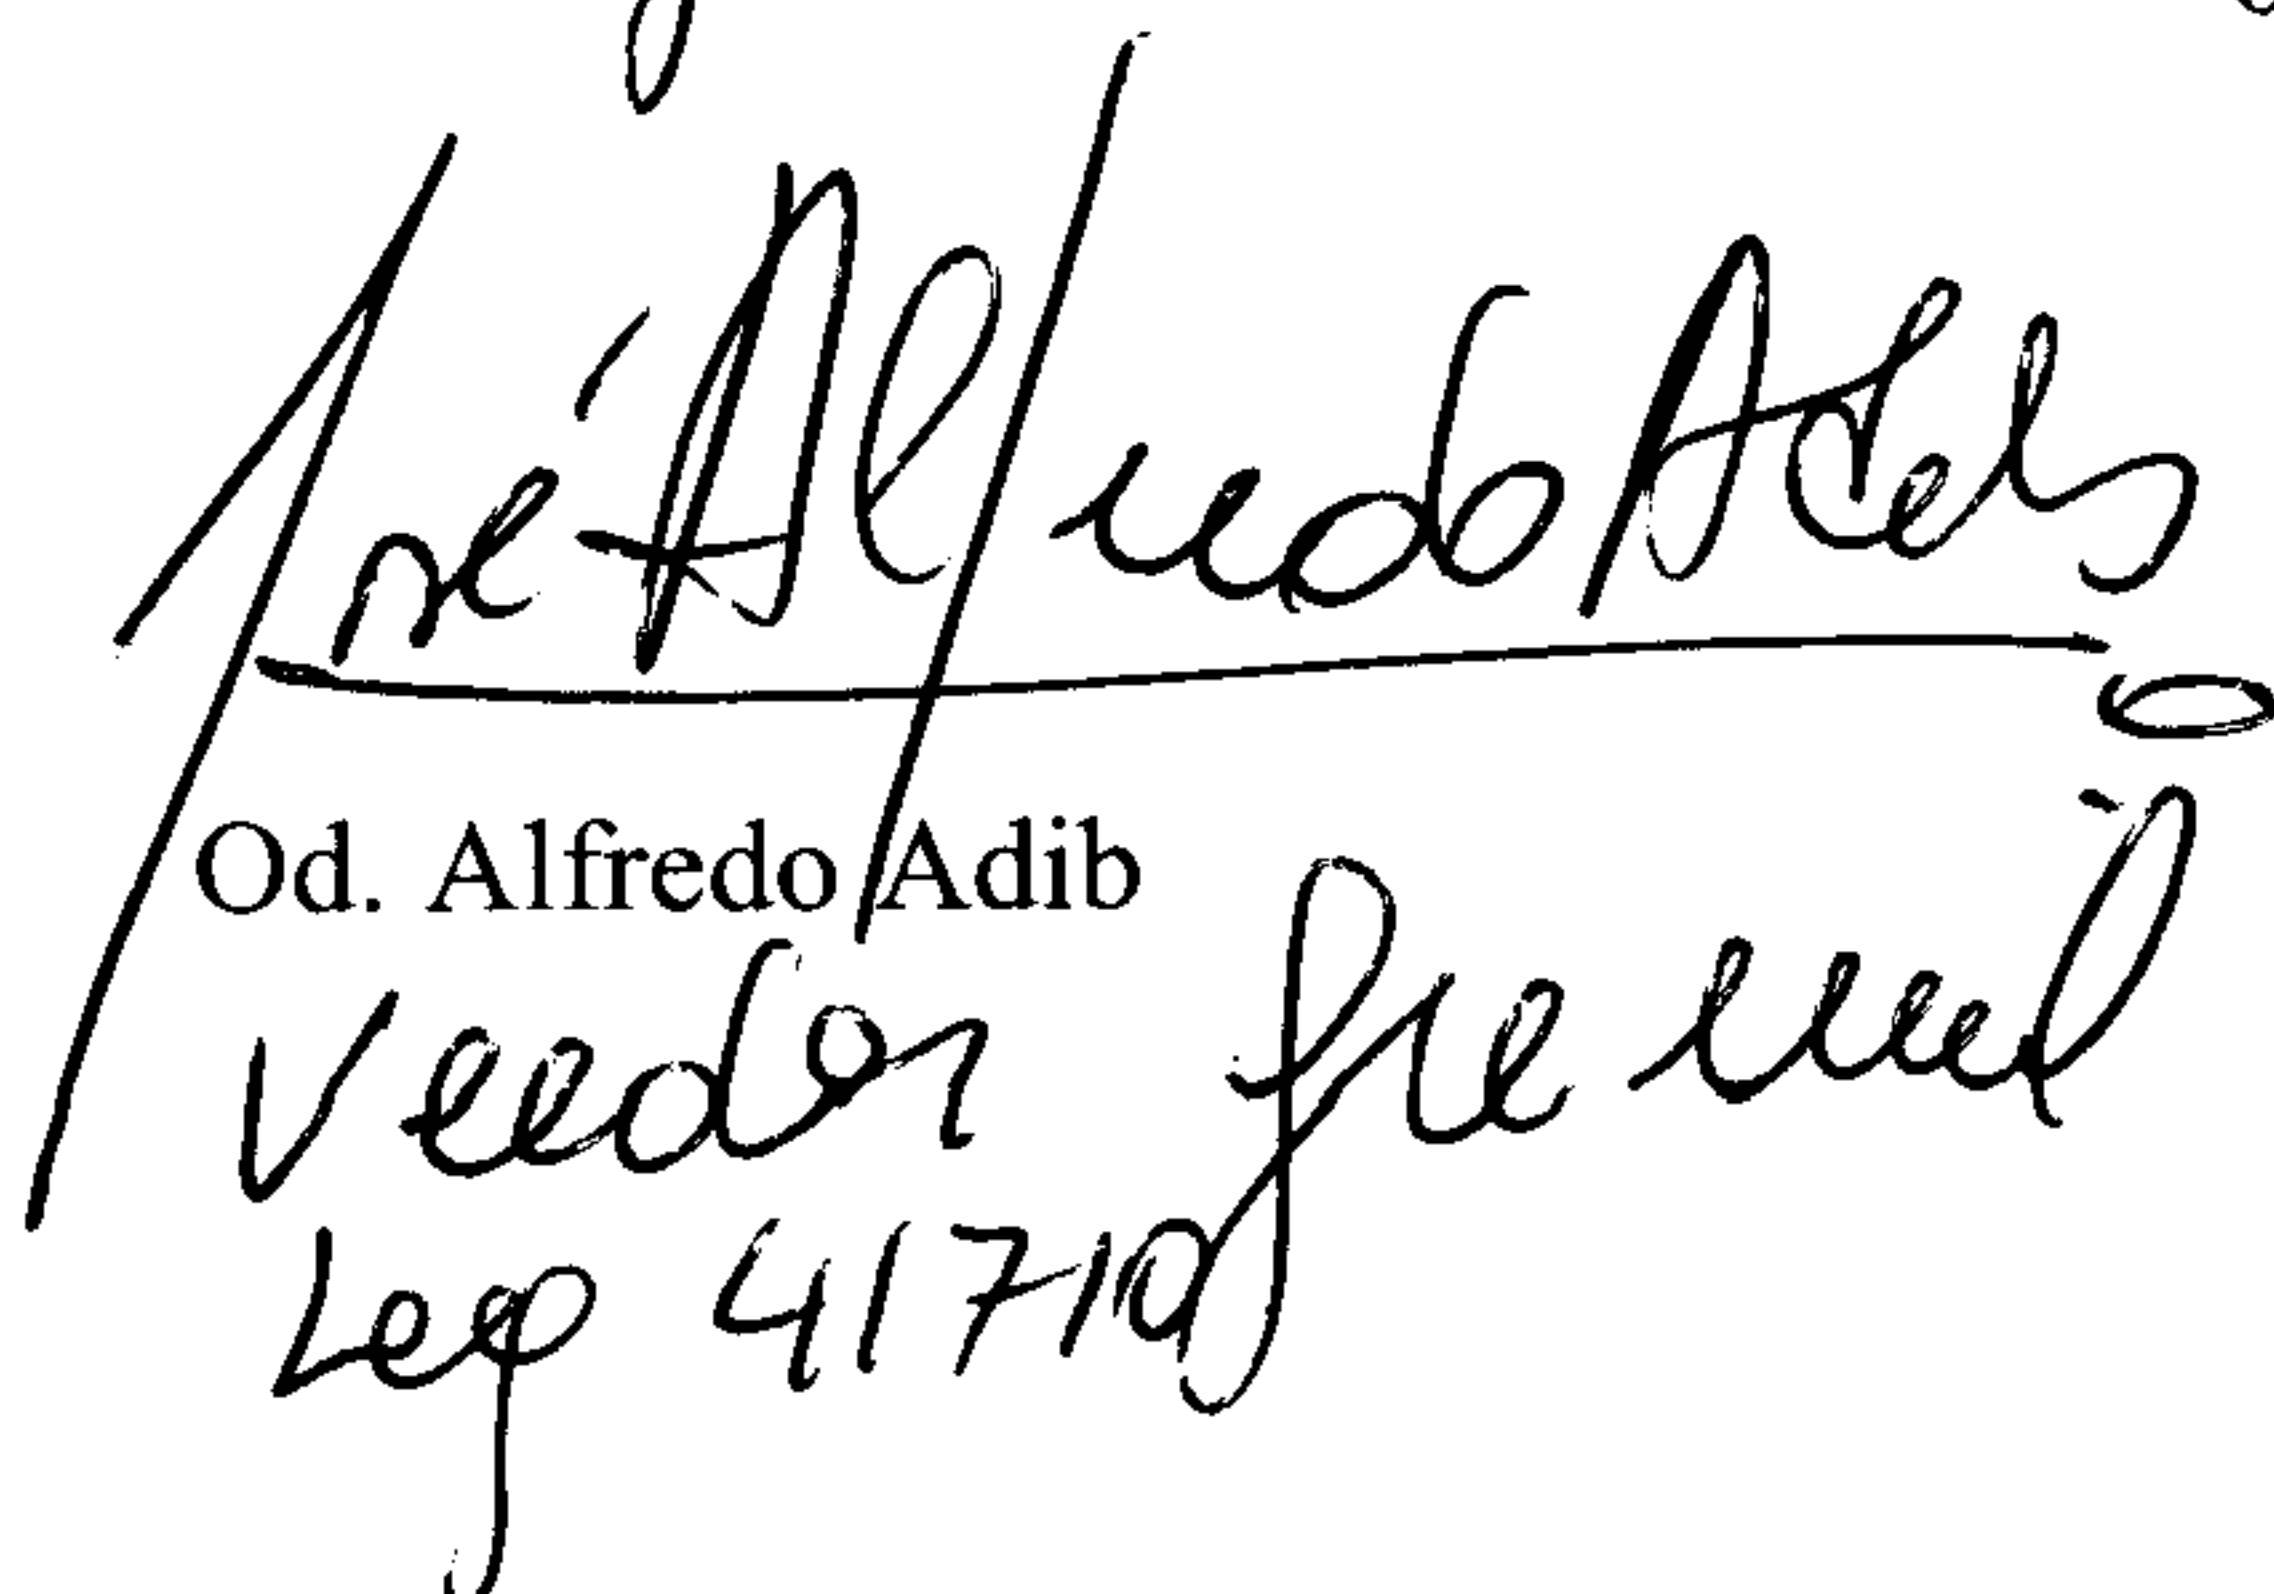 José Alfredo Adib
Od. Alfredo Adib
Veedor gremial
Leg 41710